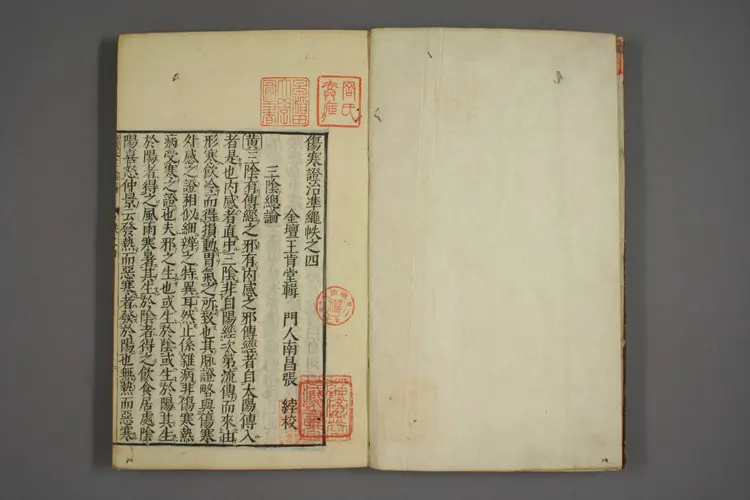 傷寒證治準繩帙之四
金壇王肯堂輯　門人南昌張　緯校
三陰總論
黃三陰有傳經之邪有內感之邪傳經者自太陽傳入
者是也內感者直中三陰非自陽經次第流傳而來由
形寒飲冷而得損動胃氣之所致也其脉證略與傷寒
外感之證相似細辨之特異耳然止係雜病非傷寒熱
病受寒之證也夫邪之生也或生於陰或生於陽其生
於陽者得之風雨寒暑其生於陰者得之飲食居處陰
陽喜怒仲景云發熱而惡寒者發於陽也無熱而惡寒